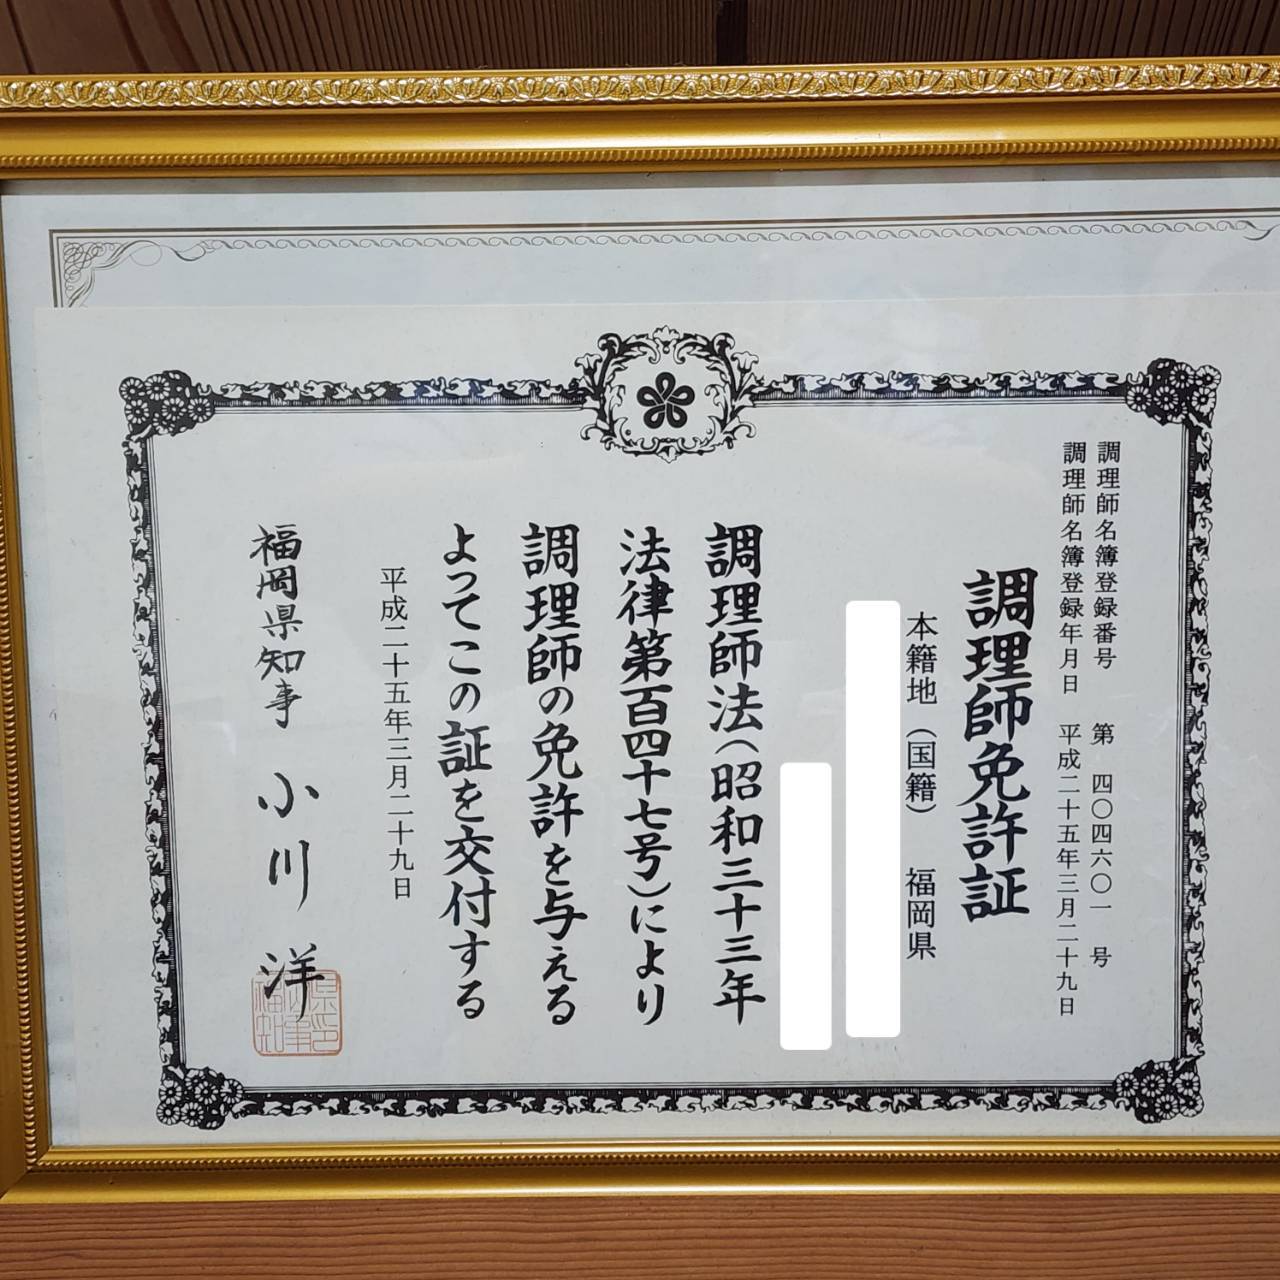 調理師名簿登録番号 第四〇四六〇一号
調理師名簿登録年月日 平成二十五年三月二十九日
調理師免許証
本籍地（国籍） 福岡県
調理師法（昭和三十三年
法律第百四十七号）により
調理師の免許を与える
よってこの証を交付する
平成二十五年三月二十九日
福岡県知事 小川 洋